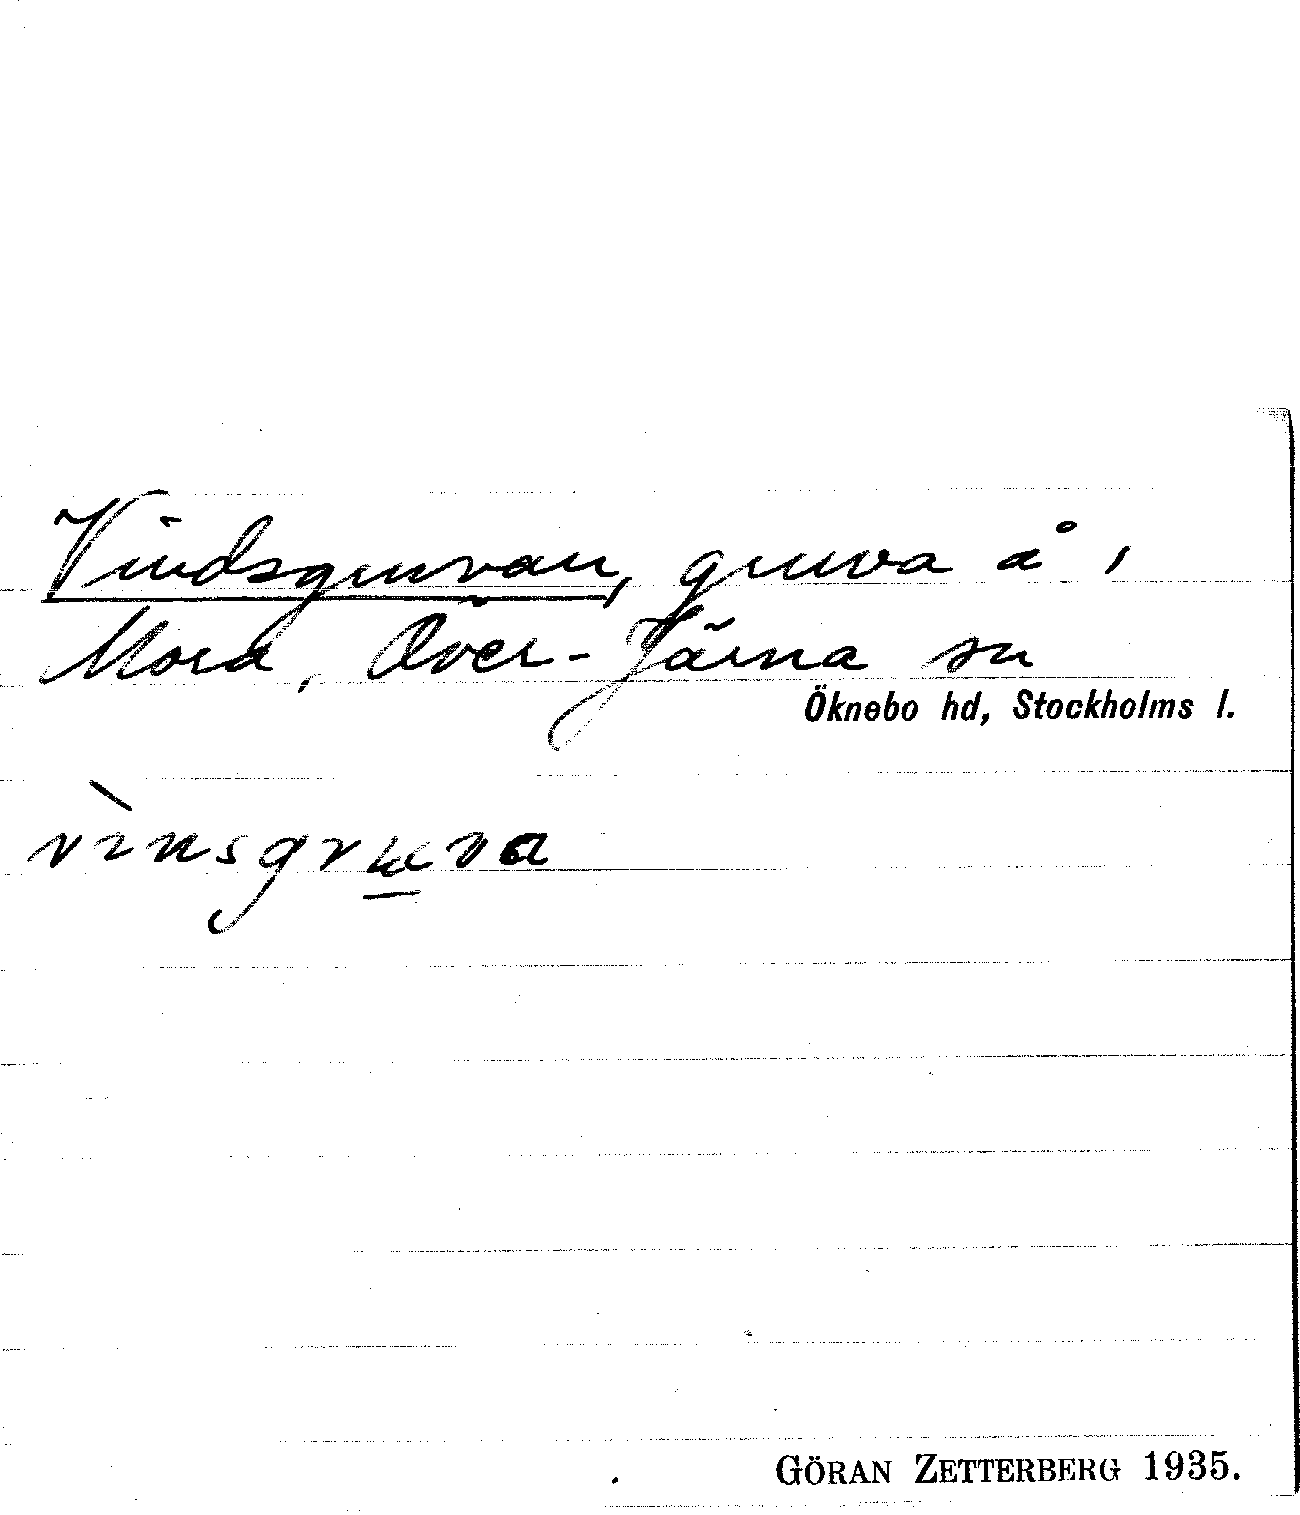 Vindsgruvan, gruva å 1
Mora, Över-Järna sn
Öknebo hd, Stockholms l.
vìnsgruva
GÖRAN ZETTERBERG 1935.